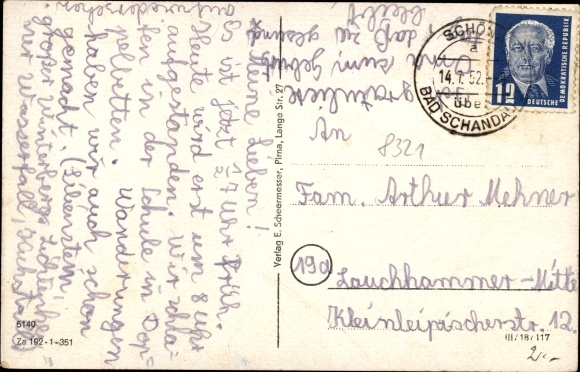 Meine Lieben!
Es ist jetzt 17 Uhr früh.
Heute wird erst um 8 Uhr
aufgestanden. Wir schla-
fen in der Schule in Dop-
pelbetten. Wandrungen
haben wir auch schon
gemacht. (Lilienstein,
großer Winterberg, Lichtenhai-
ner Wasserfall, Kuhstall)
aufwiedersehen
gratuliere
zum geburt
daß du gesund
bleibst
Verlag E. Scheermesser, Pirna, Lange Str. 27
SCHÖN
a
14.7.52.
über
BAD SCHANDAU
12
DEUTSCHE
DEMOKRATISCHE REPUBLIK
8321
An
Fam. Arthur Mehner
19a
Lauchhammer-Mitte
Kleinleipischerstr. 12.
5140
Za 192-1-351
III/18/117
2,-